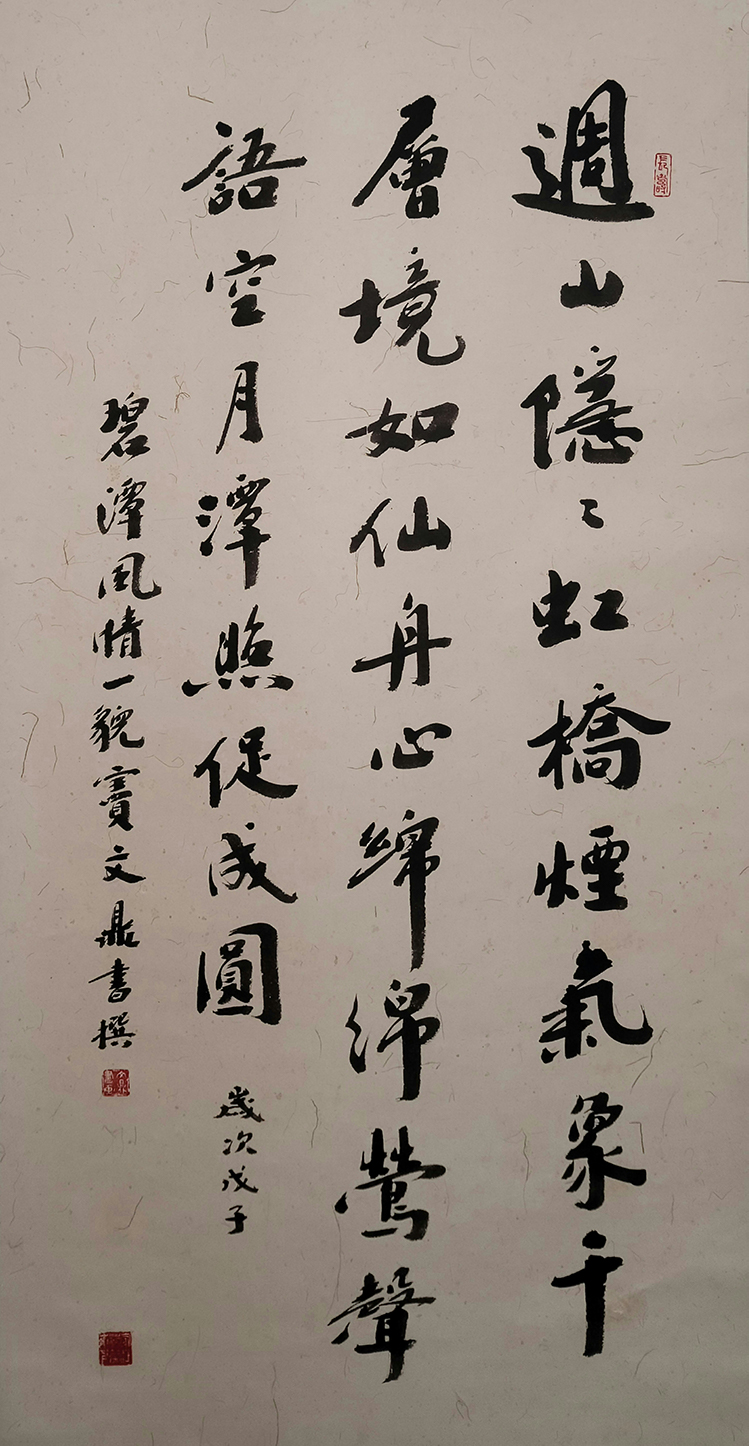 週山隱〻虹橋煙氣象千
層境如仙舟心綿綿鶯聲
語空月潭照促成圓
歲次戊子
碧潭風情一貌竇文鼎書撰